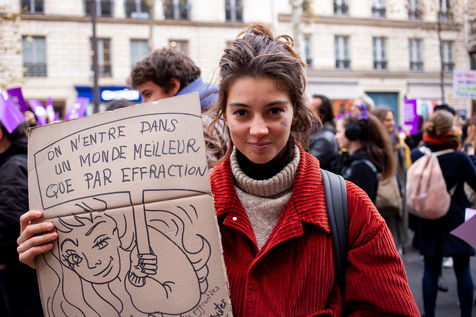 ON N'ENTRE DANS
UN MONDE MEILLEUR
QUE PAR EFFRACTION